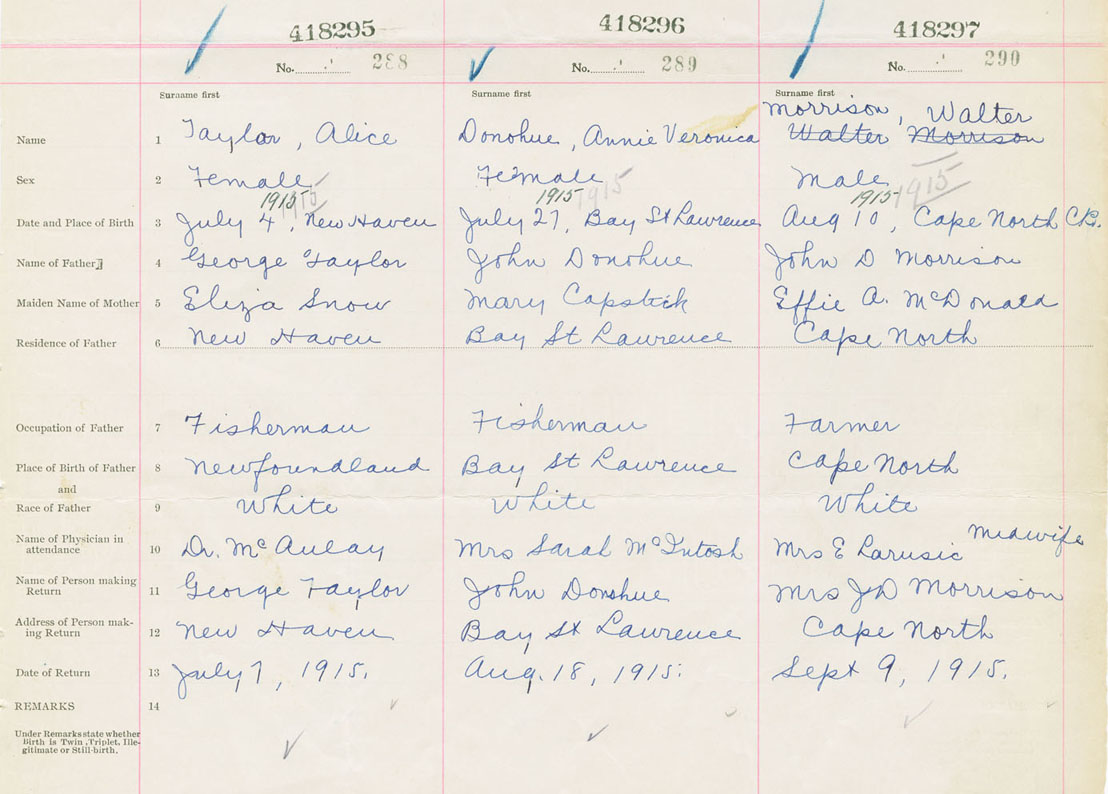 418295 418296 418297
No. 288 No. 289 No. 290
Surname first Surname first Surname first
Morrison, Walter
Name 1 Taylor, Alice Donohue, Annie Veronica Walter Morrison
Sex 2 Female Female Male
1915 1915 1915 1915 1915 1915
Date and Place of Birth 3 July 4, New Haven July 27, Bay St Lawrence Aug 10, Cape North C.B.
Name of Father 4 George Taylor John Donohue John D Morrison
Maiden Name of Mother 5 Eliza Snow Mary Capstick Effie A. McDonald
Residence of Father 6 New Haven Bay St Lawrence Cape North
Occupation of Father 7 Fisherman Fisherman Farmer
Place of Birth of Father 8 Newfoundland Bay St Lawrence Cape North
and
Race of Father 9 White White White
Name of Physician in Midwife
attendance 10 Dr. McAulay Mrs Sarah McIntosh Mrs E Larusic
Name of Person making
Return 11 George Taylor John Donohue Mrs JD Morrison
Address of Person mak-
ing Return 12 New Haven Bay St Lawrence Cape North
Date of Return 13 July 7, 1915. Aug. 18, 1915. Sept 9, 1915.
REMARKS 14
Under Remarks state whether
Birth is Twin, Triplet, Ille-
gitimate or Still-birth.